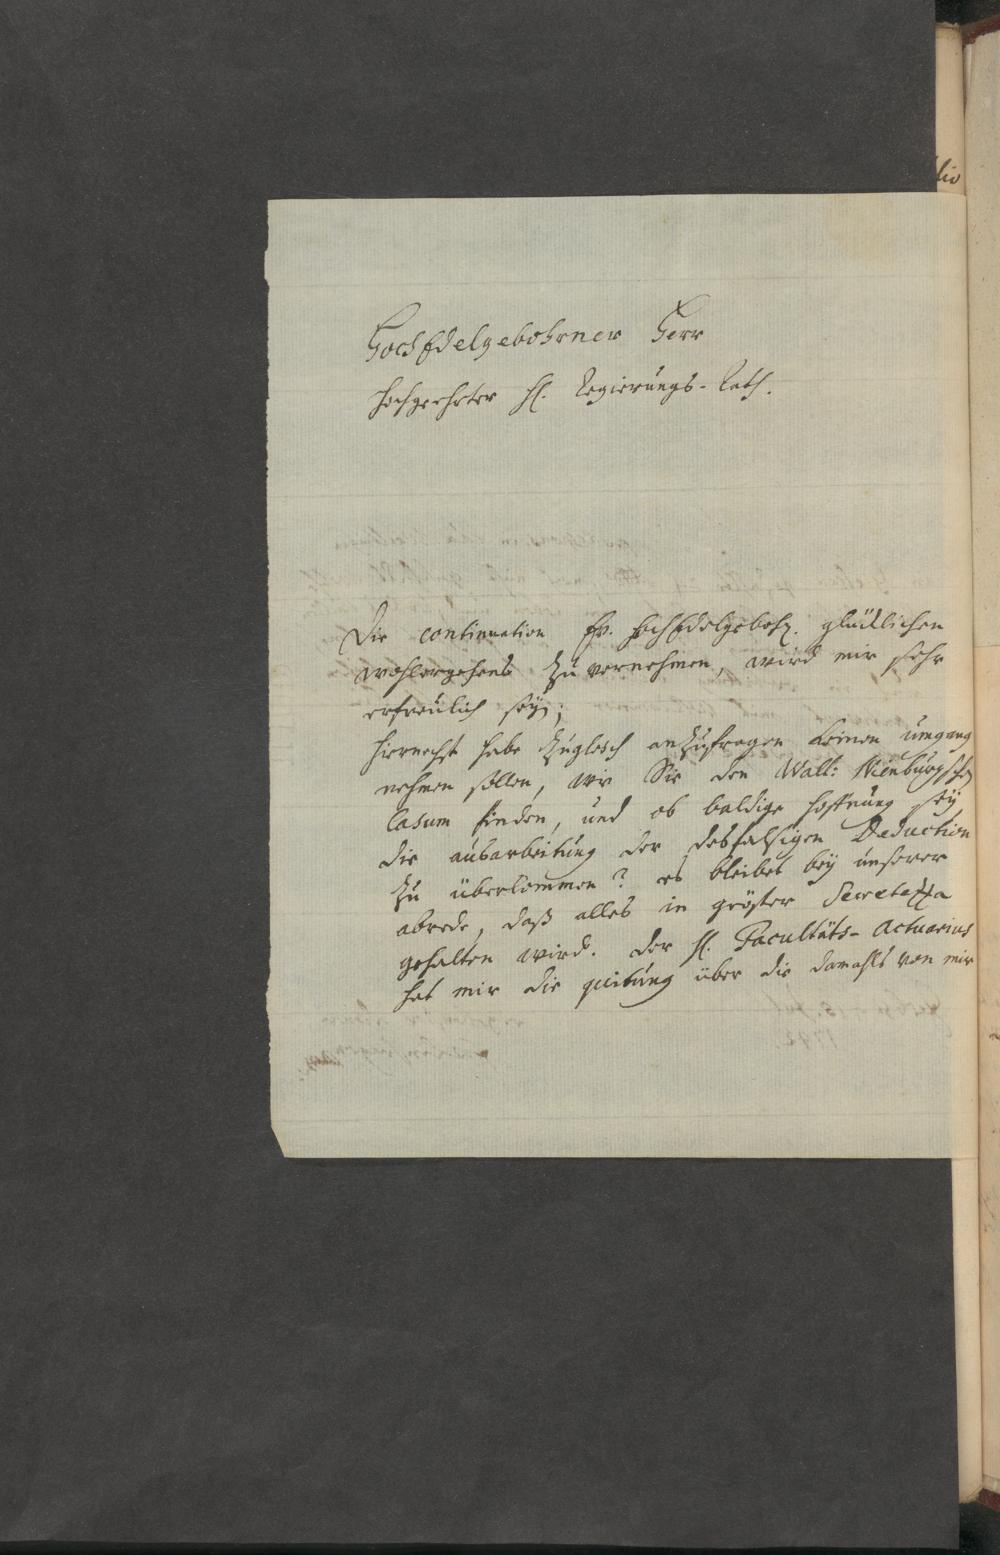 HochEdelgebohrner Herr
Hochgeehrter H. Regierungs-Rath.
Die continuation Ew. HochEdelgebohr. glücklichen
wohlergehens zu vernehmen, wird mir sehr
erfreulich seyn;
Hiernechst habe zugleich anzufragen keinen umgang
nehmen sollen, wie Sie den Walt: Nienburgschen
Casum finden, und ob baldige hoffnung sey
die ausarbeitung der desfalsigen Deduction
zu überkommen? es bleibet bey unserer
abrede, daß alles in gröster
gehalten wird. der H. Facultäts-Actuarius
hat mir die quitung über die damahls von mir